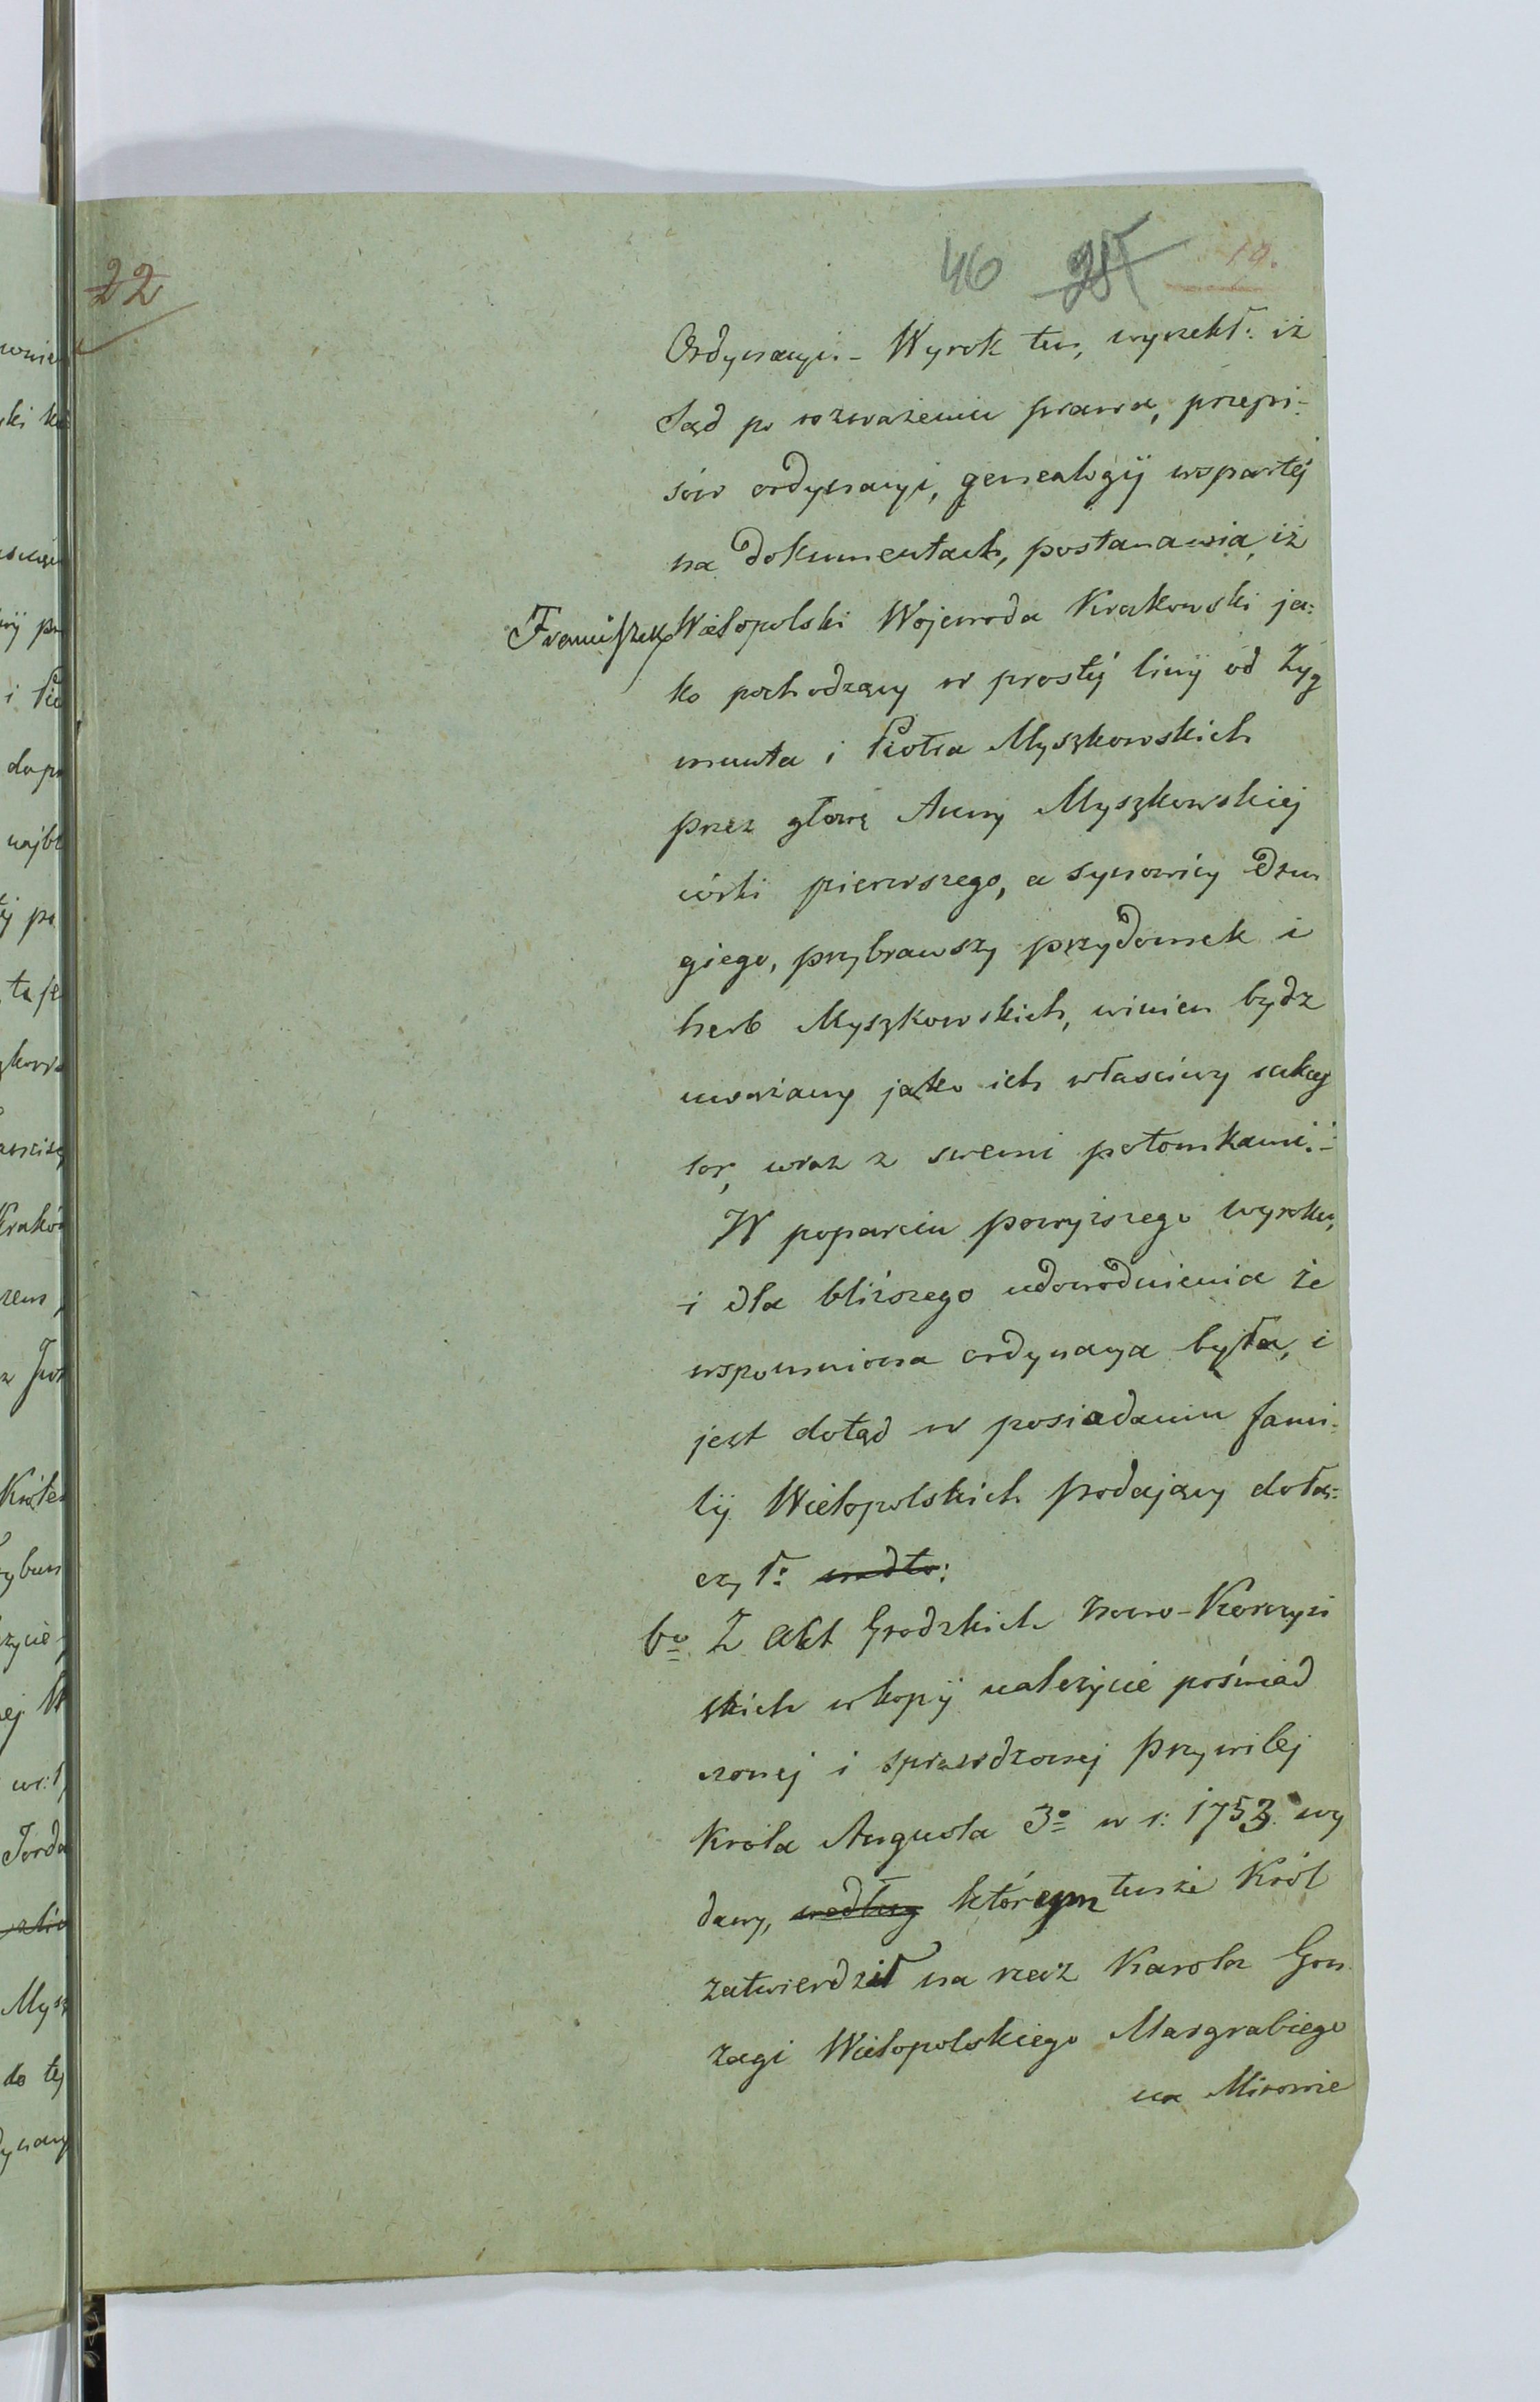 22
46 25 19.
Ordynacyi - Wyrok ten, wyrzekł: iż
Sąd po rozważeniu prawa, przepi-
sów ordynacyi, genealogij wspartéj
na dokumentach, postanawia, iż
Franciszek Wielopolski Wojewoda Krakowski ja:
ko pochodzący w prostéj linij od Zyg
munta i Piotra Myszkowskich
przez głowę Anny Myszkowskiej
córki pierwszego, a synowicy dru
giego, przybrawszy przydomek i
herb Myszkowskich, winien bydz
uważany jako ich właściwy sukces
sor, wraz z swemi potomkami.-
W poparciu powyższego wyroku,
i dla bliższego udowodnienia że
wspomniona ordynacya była, i
jest dotąd w posiadaniu fami-
lij Wielopolskich podający dołą:
czył:
b° Z Akt Grodzkich Nowo-Korczyń
skich w kopij należycie poświad
czonej i sprawdzonej przywilej
Króla Augusta 3° w r: 1753. wy
dany, według którym tenże Król
zatwierdził na rzecz Karola Gon
zagi Wielopolskiego Margrabiego
na Mirowie